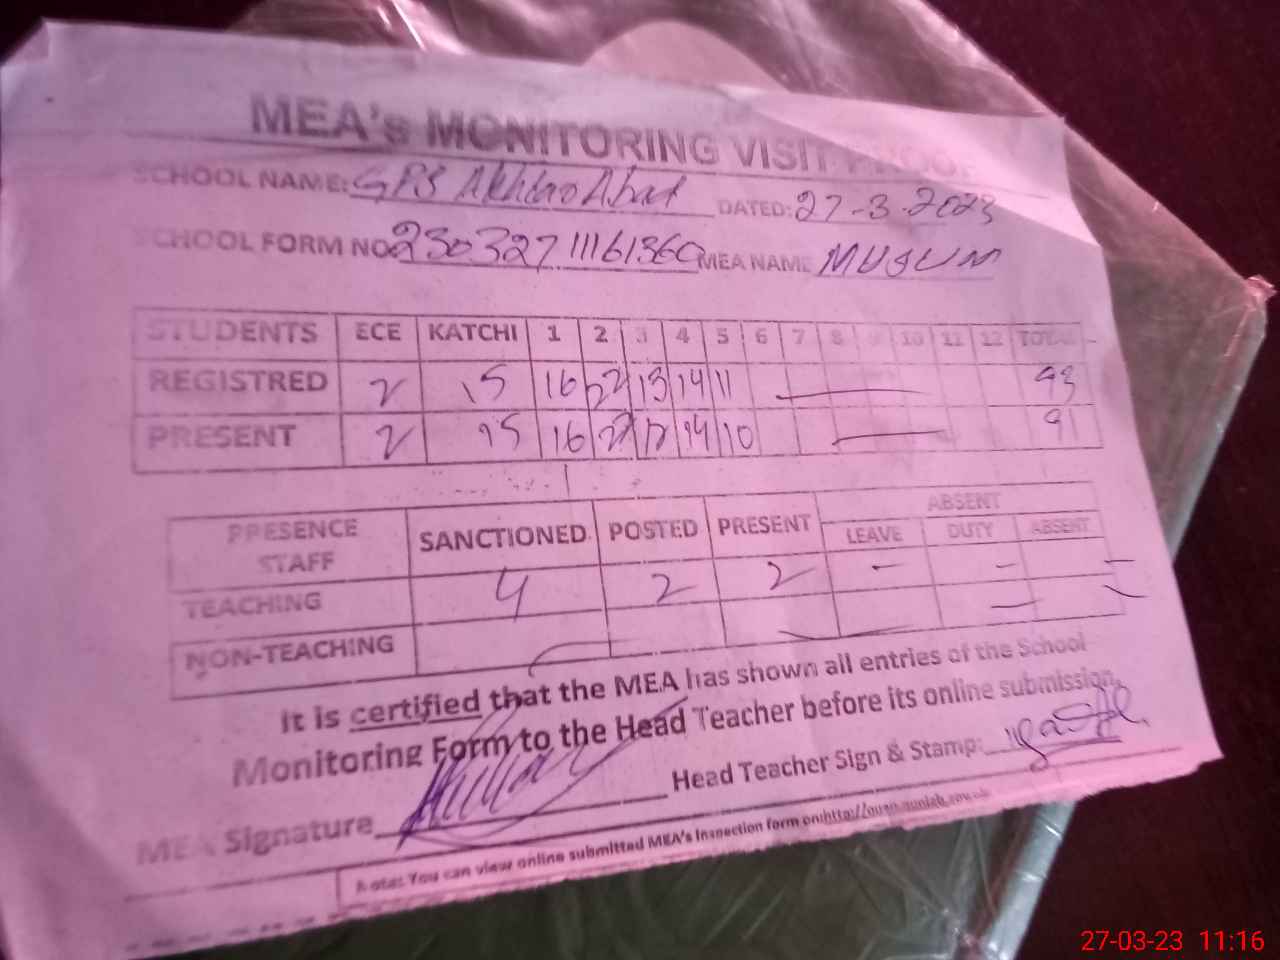 MEA's MONITORING VISIT PROOF
SCHOOL NAME: GPS Akhtar Abad DATED: 27-3-2023
SCHOOL FORM NO 23032711161360 MEA NAME
STUDENTS ECE KATCHI 1 2 3 4 5 6 7 8 9 10 11 12 TOTAL
REGISTRED 2 15 16 22 13 14 11 — 93
PRESENT 2 15 16 22 12 14 10 — 91
PRESENCE STAFF SANCTIONED POSTED PRESENT ABSENT
LEAVE DUTY ABSENT
TEACHING 4 2 2 - - -
NON-TEACHING — — — —
It is certified that the MEA has shown all entries of the School
Monitoring Form to the Head Teacher before its online submission.
MEA Signature Head Teacher Sign & Stamp:
Note: You can view online submitted MEA's Inspection form on:
27-03-23 11:16